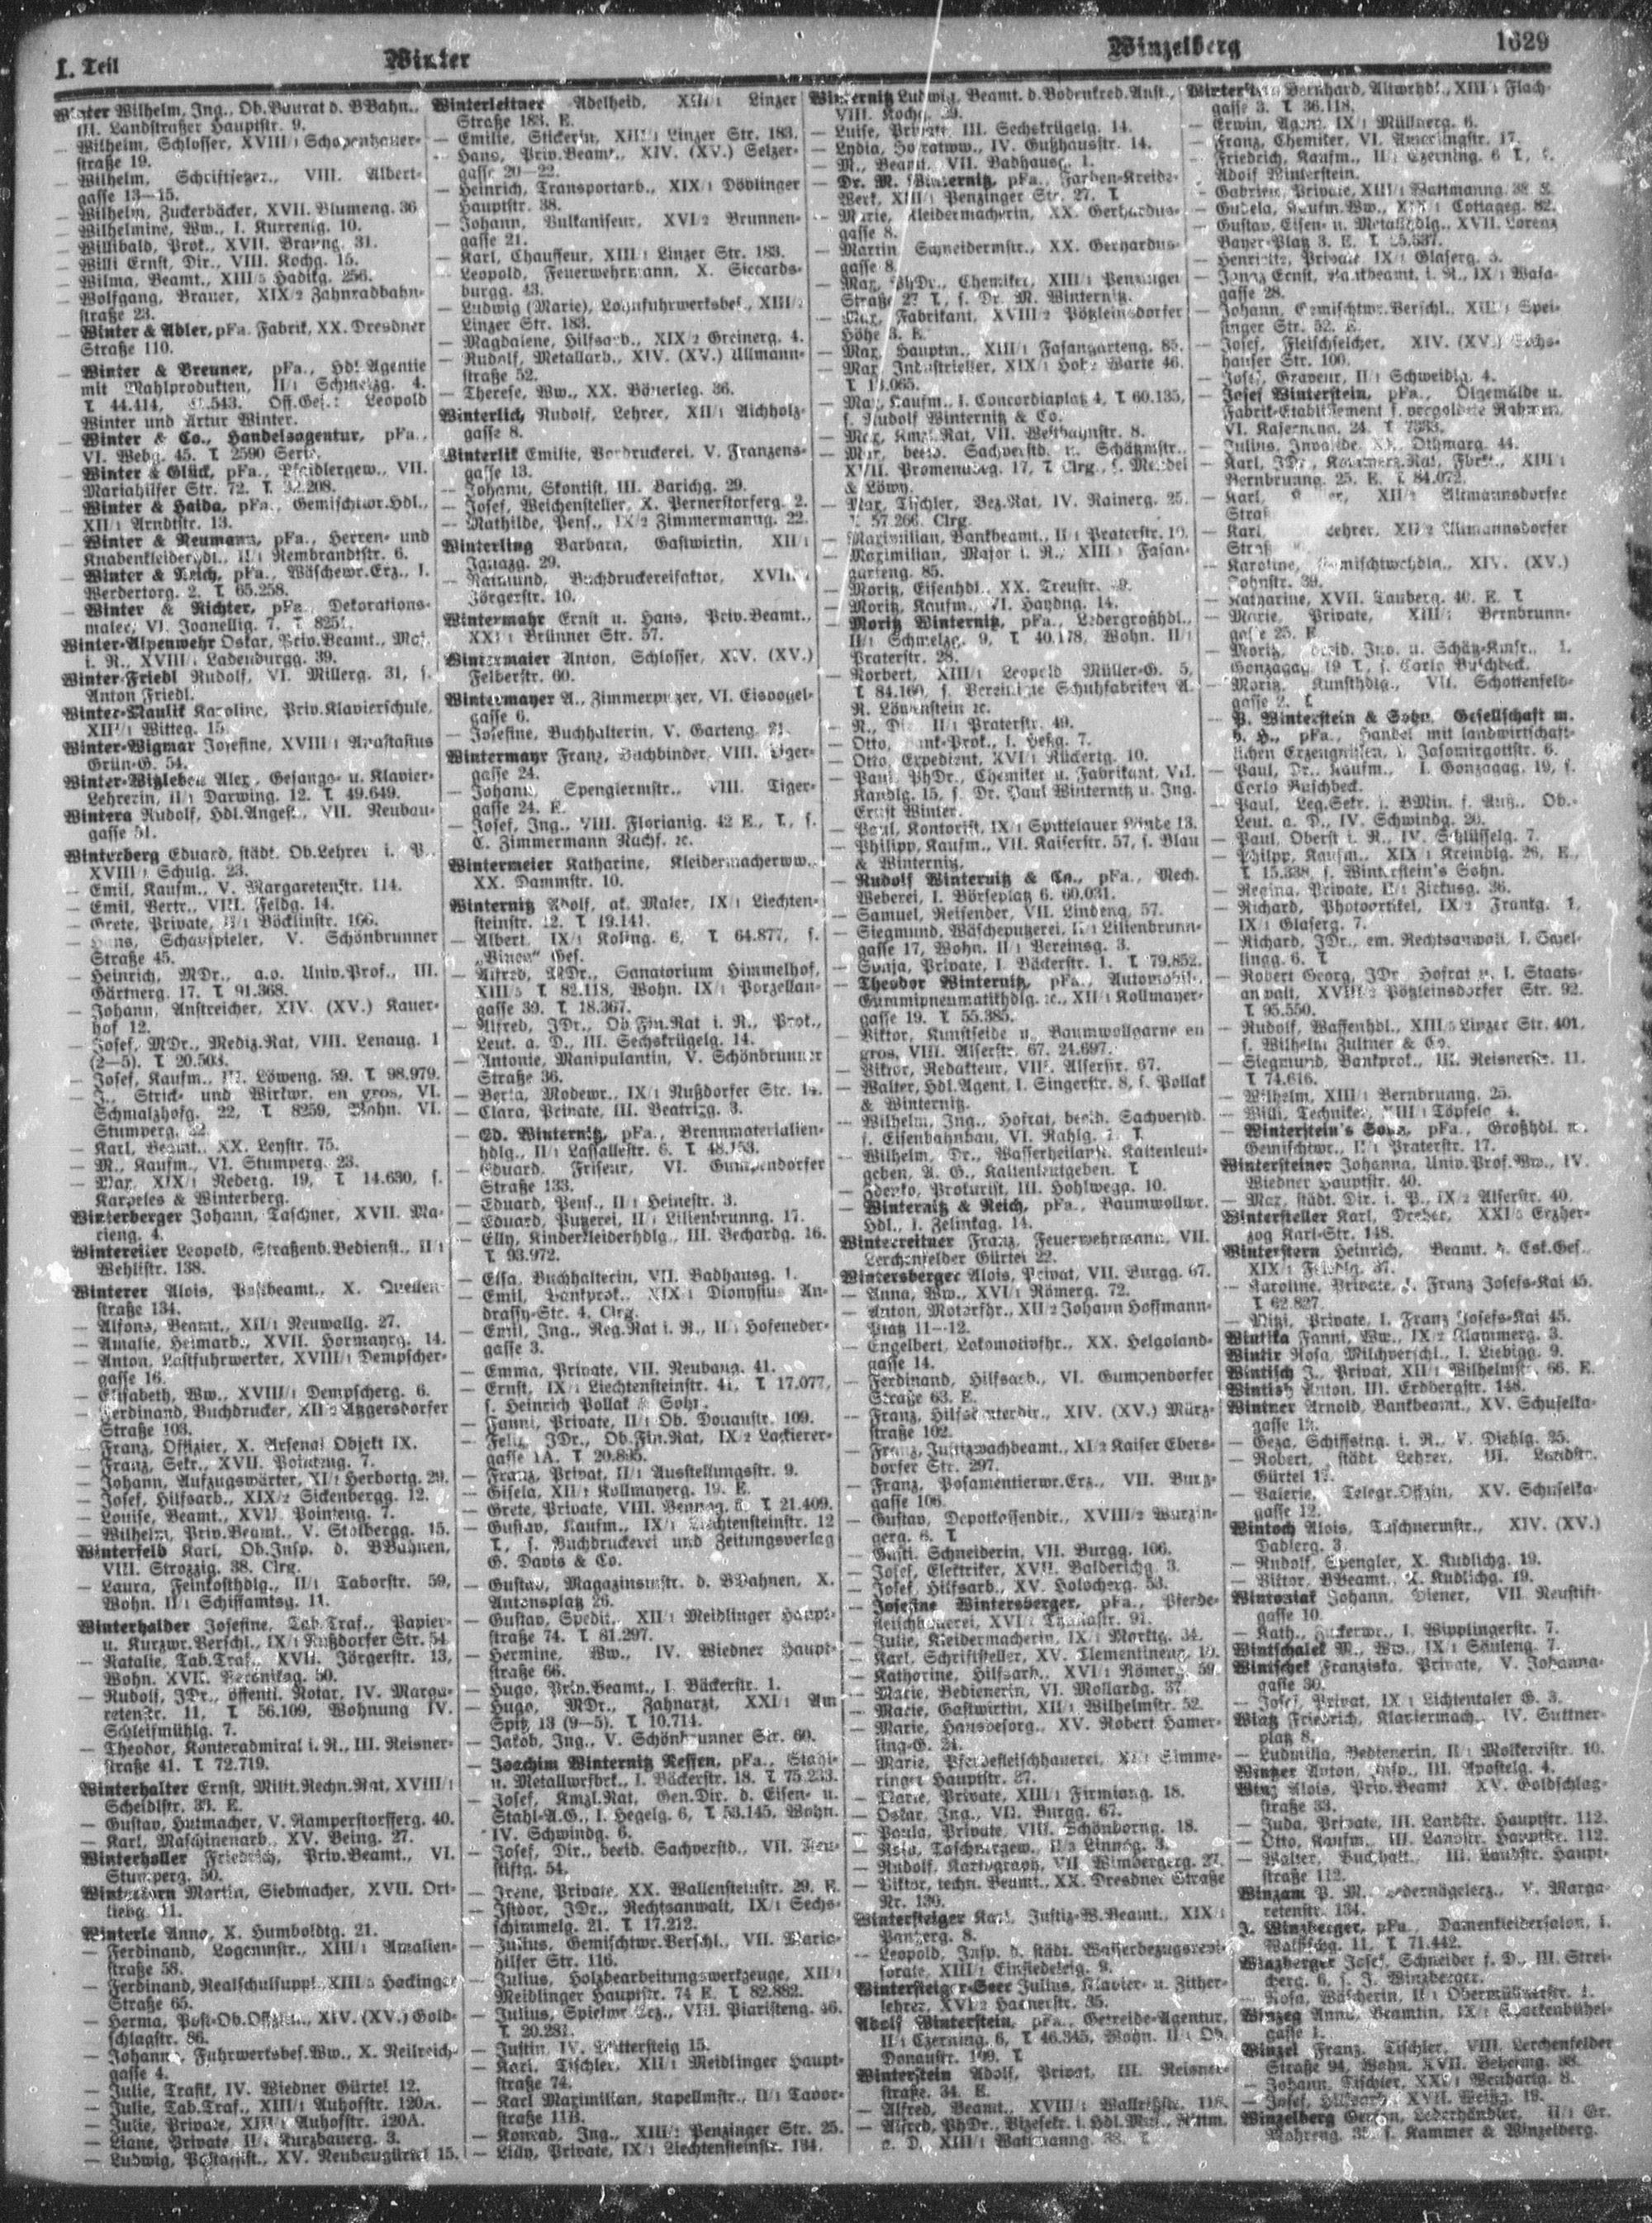 I. Teil
Winter
Winzelberg
1629
Wilhelm, Ing., Ob.Baurat d. BBahn.,
III. Landstraßer Hauptstr. 9.
— Wilhelm, Schlosser, XVIII/1 Schopenhauer-
straße 19.
— Wilhelm, Schriftsetzer., VIII. Albert-
gasse 13—15.
— Wilhelm, Zuckerbäcker, XVII. Blumeng. 36
— Wilhelmine, Ww., I. Kurrentg. 10.
— Willibald, Prok., XVII. Braung. 31.
— Willi Ernst, Dir., VIII. Kochg. 15.
— Wilma, Beamt., XIII/5 Hadikg. 256.
— Wolfgang, Brauer, XIX/2 Zahnradbahn-
straße 23.
— Winter & Adler, pFa. Fabrik, XX. Dresdner
Straße 110.
— Winter & Breuner, pFa., Hdl.Agentie
mit Mahlprodukten, II/1 Schmelzg. 4.
T. 44.414, Off.Ges.: Leopold
Winter und Artur Winter.
— Winter & Co., Handelsagentur, pFa.,
VI. Webg. 45. T. 2590 Serie.
— Winter & Glück, pFa., Pfaidlergew., VII.
Mariahilfer Str. 72. T.
— Winter & Haida, pFa., Gemischtwr.Hdl.,
XII/1 Arndtstr. 13.
— Winter & Neumann, pFa., Herren- und
Knabenkleiderhdl., II/1 Rembrandtstr. 6.
— Winter & Reich, pFa., Wäschewr.Erz., I.
Werdertorg. 2. T. 65.258.
— Winter & Richter, pFa., Dekorations-
maler, VI. Joanellig. 7. T.
Winter-Alpenwehr Oskar, Priv.Beamt., Maj.
i. R., XVIII/1 Ladenburgg. 39.
Winter-Friedl Rudolf, VI. Millerg. 31, s.
Anton Friedl.
Winter-Maulik Karoline, Priv.Klavierschule,
XII/1 Witteg. 15.
Winter-Wigmar Josefine, XVIII/1 Anastasius
Grün-G. 54.
Winter-Witzleben Alex., Gesangs- u. Klavier-
Lehrerin, II/1 Darwing. 12. T. 49.649.
Wintera Rudolf, Hdl.Angest., VII. Neubau-
gasse 51.
Winterberg Eduard, städt. Ob.Lehrer i. P.,
XVIII/1 Schulg. 23.
— Emil, Kaufm., V. Margaretenstr. 114.
— Emil, Vertr., VIII. Feldg. 14.
— Grete, Private, II/1 Böcklinstr. 106.
— Hans, Schauspieler, V. Schönbrunner
Straße 45.
— Heinrich, MDr., a.o. Univ.Prof., III.
Gärtnerg. 17. T. 91.368.
— Johann, Anstreicher, XIV. (XV.) Kauer-
hof 12.
— Josef, MDr., Mediz.Rat, VIII. Lenaug. 1
(2—5). T. 20.503.
— Josef, Kaufm., III. Löweng. 59. T. 98.979.
— J., Strick- und Wirkwr. en gros, VI.
Schmalzhofg. 22, T. 8259, Wohn. VI.
Stumperg. 22.
— Karl, Beamt., XX. Leystr. 75.
— M., Kaufm., VI. Stumperg. 23.
— Max, XIX/1 Nederg. 19, T. 14.630, s.
Karpeles & Winterberg.
Winterberger Johann, Taschner, XVII. Ma-
rieng. 4.
Wintereiter Leopold, Straßenb.Bedienst., II/1
Wehlistr. 138.
Winterer Alois, Postbeamt., X. Quellen-
straße 134.
— Alfons, Beamt., XII/1 Neuwallg. 27.
— Amalie, Heimarb., XVII. Hormayrg. 14.
— Anton, Lastfuhrwerker, XVIII/1 Dempscher-
gasse 16.
— Elisabeth, Ww., XVIII/1 Dempscherg. 6.
— Ferdinand, Buchdrucker, XII/2 Atzgersdorfer
Straße 103.
— Franz, Offizier, X. Arsenal Objekt IX.
— Franz, Sekr., XVII. Pointeng. 7.
— Johann, Aufzugswärter, XI/1 Herbortg. 29.
— Josef, Hilfsarb., XIX/2 Sickenbergg. 12.
— Louise, Beamt., XVII. Pointeng. 7.
— Wilhelm, Priv.Beamt., V. Stolbergg. 15.
Winterfeld Karl, Ob.Insp. d. BBahnen,
VIII. Strozzig. 38. Clrg.
— Laura, Feinkosthdlg., II/1 Taborstr. 59,
Wohn. II/1 Schiffamtsg. 11.
Winterhalder Josefine, Tab.Traf., Papier-
u. Kurzwr.Verschl., IX/1 Nußdorfer Str. 54
— Natalie, Tab.Traf., XVII. Jörgerstr. 13,
Wohn. XVII. Veronikag. 50.
— Rudolf, JDr., öffentl. Notar, IV. Marga-
retenstr. 11, T. 56.109, Wohnung IV.
Schleifmühlg. 7.
— Theodor, Konteradmiral i. R., III. Reisner-
straße 41. T. 72.719.
Winterhalter Ernst, Milit.Rechn.Rat, XVIII/1
Scheidlstr. E.
— Gustav, Hutmacher, V. Ramperstorfferg. 40.
— Karl, Maschinenarb., XV. Being. 27.
Winterholler Friedrich, Priv.Beamt., VI.
Stumperg. 50.
Winterkorn Martin, Siebmacher, XVII. Ort-
liebg. 11.
Winterle Anno, X. Humboldtg. 21.
— Ferdinand, Logenmstr., XIII/1 Amalien-
straße 58.
— Ferdinand, Realschulsuppl., XIII/5 Hackinger
Straße 65.
— Herma, Post-Ob.Offizin., XIV. (XV.) Gold-
schlagstr. 86.
— Johanna, Fuhrwerksbes.Ww., X. Neilreich-
gasse 4.
— Julie, Trafik, IV. Wiedner Gürtel 12.
— Julie, Tab.Traf., XIII/1 Auhofstr. 120A.
— Julie, Private, XIII/1 Auhofstr. 120A.
— Liane, Private, II/1 Kurzbauerg. 3.
— Ludwig, Postassist., XV. Neubaugürtel 15.
Winterleitner Adelheid, XIII/1 Linzer
Straße 183. E.
— Emilie, Stickerin, XIII/1 Linzer Str. 183.
— Hans, Priv.Beamt., XIV. (XV.) Selzer-
gasse 20—22.
— Heinrich, Transportarb., XIX/1 Döblinger
Hauptstr. 38.
— Johann, Vulkaniseur, XVI/2 Brunnen-
gasse 21.
— Karl, Chauffeur, XIII/1 Linzer Str. 183.
— Leopold, Feuerwehrmann, X. Siccards-
burgg. 43.
— Ludwig (Marie), Lohnfuhrwerksbes., XIII/1
Linzer Str. 183.
— Magdalene, Hilfsarb., XIX/2 Greinerg. 4.
— Rudolf, Metallarb., XIV. (XV.) Ullmann-
straße 52.
— Therese, Ww., XX. Bäuerleg. 36.
Winterlich Rudolf, Lehrer, XII/1 Aichholz-
gasse 8.
Winterlik Emilie, Vordruckerei, V. Franzens-
gasse 13.
— Johann, Skontist, III. Barichg. 29.
— Josef, Weichensteller, X. Pernerstorferg. 2.
— Mathilde, Pens., IX/2 Zimmermanng. 22.
Winterling Barbara, Gastwirtin, XII/1
Ignazg. 29.
— Raimund, Buchdruckereifaktor,
Jörgerstr. 10.
Wintermahr Ernst u. Hans, Priv.Beamt.,
XXI/1 Brünner Str. 57.
Wintermaier Anton, Schlosser, XIV. (XV.)
Felberstr. 60.
Wintermayer A., Zimmerputzer, VI. Eisvogel-
gasse 6.
— Josefine, Buchhalterin, V. Garteng. 21.
Wintermayr Franz, Buchbinder, VIII. Tiger-
gasse 24.
— Johann, Spenglermstr., VIII. Tiger-
gasse 24. E.
— Josef, Ing., VIII. Florianig. 42 E., T., s.
C. Zimmermann Nachf. ec.
Wintermeier Katharine, Kleidermacherww.,
XX. Dammstr. 10.
Winternitz Adolf, ak. Maler, IX/1 Liechten-
steinstr. 12. T. 19.141.
— Albert, IX/1 Koling. 6, T. 64.877, s.
„Vinea“ Ges.
— Alfred, MDr., Sanatorium Himmelhof,
XIII/5 T. 82.118, Wohn. IX/1 Porzellan-
gasse 39. T. 18.367.
— Alfred, JDr., Ob.Fin.Rat i. R., Prok.,
Leut. a. D., III. Sechskrügelg. 14.
— Antonie, Manipulantin, V. Schönbrunner
Straße 36.
— Berta, Modewr., IX/1 Nußdorfer Str. 14.
— Clara, Private, III. Beatrixg. 3.
— Ed. Winternitz, pFa., Brennmaterialien-
hdlg., II/1 Lassallestr. 6. T. 48.153.
— Eduard, Friseur, VI. Gumpendorfer
Straße 133.
— Eduard, Pens., II/1 Heinestr. 3.
— Eduard, Putzerei, II/1 Lilienbrunng. 17.
— Elly, Kinderkleiderhdlg., III. Bechardg. 16.
T. 93.972.
— Elsa, Buchhalterin, VII. Badhausg. 1.
— Emil, Bankprok., XIX/1 Dionysius An-
drassy-Str. 4. Clrg.
— Emil, Ing., Reg.Rat i. R., II/1 Hofeneder-
gasse 3.
— Emma, Private, VII. Neubaug. 41.
— Ernst, IX/1 Liechtensteinstr. 41, T. 17.077,
s. Heinrich Pollak & Sohn.
— Fanni, Private, II/1 Ob. Donaustr. 109.
— Felix, JDr., Ob.Fin.Rat, IX/2 Lackierer-
gasse 1A. T. 20.895.
— Franz, Privat, II/1 Ausstellungsstr. 9.
— Gisela, XII/1 Kollmayerg. 19. E.
— Grete, Private, VIII. Bennog. T. 21.409.
— Gustav, Kaufm., IX/1 Liechtensteinstr. 12
T., s. Buchdruckerei und Zeitungsverlag
G. Davis & Co.
— Gustav, Magazinsmstr. d. BBahnen, X.
Antonsplatz 26.
— Gustav, Spedit., XII/1 Meidlinger Haupt-
straße 74. T. 81.297.
— Hermine, Ww., IV. Wiedner Haupt-
straße 66.
— Hugo, Priv.Beamt., I. Bäckerstr. 1.
— Hugo, MDr., Zahnarzt, XXI/1 Am
Spitz 13 (9—5). T. 10.714.
— Jakob, Ing., V. Schönbrunner Str. 60.
— Joachim Winternitz Neffen, pFa., Stahl-
u. Metallwrfbrk., I. Bäckerstr. 18. T. 75.233.
— Josef, Kmzl.Rat, Gen.Dir. d. Eisen- u.
Stahl-A.G., I. Hegelg. 6, T. 53.145, Wohn.
IV. Schwindg. 6.
— Josef, Dir., beeid. Sachverstd., VII. Neu-
stiftg. 54.
— Irene, Private, XX. Wallensteinstr. 29. E.
— Isidor, JDr., Rechtsanwalt, IX/1 Sechs-
schimmelg. 21. T. 17.212.
— Julius, Gemischtwr.Verschl., VII. Maria-
hilfer Str. 116.
— Julius, Holzbearbeitungswerkzeuge, XII/1
Meidlinger Hauptstr. 74 E. T. 82.882.
— Julius, Spielwr.Erz., VIII. Piaristeng. 46.
T. 20.281.
— Justin, IV. Mittersteig 15.
— Karl, Tischler, XII/1 Meidlinger Haupt-
straße 74.
— Karl Maximilian, Kapellmstr., II/1 Tabor-
straße 11B.
— Konrad, Ing., XIII/1 Penzinger Str. 25.
— Lidy, Private, IX/1 Liechtensteinstr. 134.
Winternitz Ludwig, Beamt. d. Bodenkred.Anst.,
VIII. Kochg. 29.
— Luise, Private, III. Sechskrügelg. 14.
— Lydia, Hofratww., IV. Gußhausstr. 14.
— M., Beamt., VII. Badhausg. 1.
— Dr. M. Winternitz, pFa., Farben-Kreide-
Werk, XIII/1 Penzinger Str. 27. T.
— Marie, Kleidermacherin, XX. Gerhardus-
gasse 8.
— Martin, Schneidermstr., XX. Gerhardus-
gasse 8.
— Max, PhDr., Chemiker, XIII/1 Penzinger
Straße 27 T., s. Dr. M. Winternitz.
— Max, Fabrikant, XVIII/2 Pötzleinsdorfer
Höhe 3. E.
— Max, Hauptm., XIII/1 Fasangarteng. 85.
— Max, Industrieller, XIX/1 Hohe Warte 46.
T.
— Max, Kaufm., I. Concordiaplatz 4, T. 60.135,
s. Rudolf Winternitz & Co.
— Max, Kmzl.Rat, VII. Westbahnstr. 8.
— Max, beeid. Sachverstd. u. Schätzmstr.,
XVII. Promenadeg. 17, T. Clrg., s. Mendel
& Löwy.
— Max, Tischler, Bez.Rat, IV. Rainerg. 25.
T. 57.266. Clrg.
— Maximilian, Bankbeamt., II/1 Praterstr. 10.
— Maximilian, Major i. R., XIII/1 Fasan-
garteng. 85.
— Moritz, Eisenhdl., XX. Treustr.
— Moritz, Kaufm., VI. Haydng. 14.
— Moritz Winternitz, pFa., Ledergroßhdl.,
II/1 Schmelzg. 9, T. 40.178, Wohn. II/1
Praterstr. 28.
— Norbert, XIII/1 Leopold Müller-G. 5,
T. 84.160, s. Vereinigte Schuhfabriken A.
R. Löwenstein ec.
— R., Dir., II/1 Praterstr. 49.
— Otto, Bank-Prok., I. Heßg. 7.
— Otto, Expedient, XVI/1 Rückertg. 10.
— Paul, PhDr., Chemiker u. Fabrikant, VII.
Kandlg. 15, s. Dr. Paul Winternitz u. Ing.
Ernst Winter.
— Paul, Kontorist, IX/1 Spittelauer Lände 13.
— Philipp, Kaufm., VII. Kaiserstr. 57, s. Blau
& Winternitz.
— Rudolf Winternitz & Co., pFa., Mech.
Weberei, I. Börseplatz 6. 60.031.
— Samuel, Reisender, VII. Lindeng. 57.
— Siegmund, Wäscheputzerei, II/1 Lilienbrunn-
gasse 17, Wohn. II/1 Vereinsg. 3.
— Sonja, Private, I. Bäckerstr. 1. T. 79.852.
— Theodor Winternitz, pFa., Automobil-,
Gummipneumatikhdlg. ec., XII/1 Kollmayer-
gasse 19. T. 55.385.
— Viktor, Kunstseide u. Baumwollgarne en
gros, VIII. Alserstr. 67. 24.697.
— Viktor, Redakteur, VIII. Alserstr. 67.
— Walter, Hdl.Agent, I. Singerstr. 8, s. Pollak
& Winternitz.
— Wilhelm, Ing., Hofrat, beeid. Sachverstd.
f. Eisenbahnbau, VI. Rahlg. T.
— Wilhelm, Dr., Wasserheilanst. Kaltenleut-
geben, A. G., Kaltenleutgeben. T.
— Zdenko, Prokurist, III. Hohlwegg. 10.
— Winternitz & Reich, pFa., Baumwollwr.
Hdl., I. Zelinkag. 14.
Winterreitner Franz, Feuerwehrmann, VII.
Lerchenfelder Gürtel 22.
Wintersberger Alois, Privat, VII. Burgg. 67.
— Anna, Ww., XVI/1 Römerg. 72.
— Anton, Motorfhr., XII/2 Johann Hoffmann-
Platz 11—12.
— Engelbert, Lokomotivfhr., XX. Helgoland-
gasse 14.
— Ferdinand, Hilfsarb., VI. Gumpendorfer
Straße 63. E.
— Franz, Hilfsämterdir., XIV. (XV.) März-
straße 102.
— Franz, Justizwachbeamt., XI/2 Kaiser Ebers-
dorfer Str. 297.
— Franz, Posamentierwr.Erz., VII. Burg-
gasse 106.
— Gustav, Depotkassendir., XVIII/2 Wurzin-
gerg. 6. T.
— Gusti, Schneiderin, VII. Burgg. 106.
— Josef, Elektriker, XVII. Balderichg. 3.
— Josef, Hilfsarb., XV. Holocherg. 53.
— Josefine Wintersberger, pFa., Pferde-
fleischhauerei, XVI/1 Thaliastr. 91.
— Julie, Kleidermacherin, IX/1 Marktg. 34.
— Karl, Schriftsteller, XV. Clementineng.
— Katharine, Hilfsarb., XVI/1 Römerg. 59.
— Marie, Bedienerin, VI. Mollardg. 37.
— Marie, Gastwirtin, XII/1 Wilhelmstr. 52.
— Marie, Hausbesorg., XV. Robert Hamer-
ling-G. 21.
— Marie, Pferdefleischhauerei, XI/1 Simme-
ringer Hauptstr. 37.
— Marie, Private, XIII/1 Firmiang. 18.
— Oskar, Ing., VII. Burgg. 67.
— Paula, Private, VIII. Schönborng. 18.
— Rosa, Taschnergew., II/2 Linneg. 3.
— Rudolf, Kartograph, VII. Wimbergerg. 27.
— Viktor, techn. Beamt., XX. Dresdner Straße
Nr. 130.
Wintersteiger Karl, Justiz-W.Beamt., XIX/1
Panzerg. 8.
— Leopold, Insp. d. städt. Wasserbezugsrevi-
sorate, XIII/1 Einsiedeleig. 9.
Wintersteiger-Seer Julius, Klavier- u. Zither-
lehrer, XVI/2 Hasnerstr. 35.
Adolf Winterstein, pFa., Getreide-Agentur,
II/1 Czerning. 6, T. 46.345, Wohn. II/1 Ob.
Donaustr. 109. T.
Winterstein Adolf, Privat, III. Reisner-
straße. 34. E.
— Alfred, Beamt., XVIII/1 Wallrißstr. 118.
— Alfred, PhDr., Vizesekr. i. Hdl.Min., Rittm.
a. D. XIII/1 Wattmanng. 38. T.
Winterstein Bernhard, Altwrhdl., XIII/1 Flach-
gasse 3. T. 36.118.
— Erwin, Agent, IX/1 Müllnerg. 6.
— Franz, Chemiker, VI. Amerlingstr. 17.
— Friedrich, Kaufm., II/1 Czerning. 6 T., s.
Adolf Winterstein.
— Gabriele, Private, XIII/1 Wattmanng. 38. E.
— Gisela, Kaufm.Ww., XIX/1 Cottageg. 82.
— Gustav, Eisen- u. Metallhdlg., XVII. Lorenz
Bayer-Platz 3. E. T.
— Henriette, Private, IX/1 Glaserg. 5.
— Ignaz Ernst, Bankbeamt. i. R., IX/1 Wasa-
gasse 28.
— Johann, Gemischtwr.Verschl., XIII/1 Spei-
singer Str. 52. E.
— Josef, Fleischselcher, XIV. (XV.) Sechs-
hauser Str. 100.
— Josef, Graveur, II/1 Schweidlg. 4.
— Josef Winterstein, pFa., Ölgemälde u.
Fabrik-Etablissement f. vergoldete Rahmen,
VI. Kaserneng. 24. T. 7383.
— Julius, Invalide, XX. Othmarg. 44.
— Karl, JDr., Kommerz.Rat, Fbrkt., XIII/1
Bernbrunng. 25. E. T. 84.072.
— Karl, XII/2 Altmannsdorfer
Straß
— Karl, Lehrer, XII/2 Altmannsdorfer
Straß
— Karoline, Gemischtwrhdlg., XIV. (XV.)
39.
— Katharine, XVII. Tauberg. 40. E. T.
— Marie, Private, XIII/1 Bernbrunn-
gasse 25. E.
— Moritz, beeid. Inv. u. Schätz-Kmsr., I.
Gonzagag. 19 T., s. Carlo Buschbeck.
— Moritz, Kunsthdlg., VII. Schottenfeld-
gasse 2. T.
— P. Winterstein & Sohn, Gesellschaft m.
b. H., pFa., Handel mit landwirtschaft-
lichen Erzeugnissen, I. Jasomirgottstr. 6.
— Paul, Dr., Kaufm., I. Gonzagag. 19, s.
Carlo Buschbeck.
— Paul, Leg.Sekr. i. BMin. f. Auß., Ob.-
Leut. a. D., IV. Schwindg. 20.
— Paul, Oberst i. R., IV. Schlüsselg. 7.
— Philipp, Kaufm., XIX/1 Kreindlg. 26, E.,
T. 15.338, s. Winterstein's Sohn.
— Regina, Private, II/1 Zirkusg. 36.
— Richard, Photoartikel, IX/2 Frankg. 1,
IX/1 Glaserg. 7.
— Richard, JDr., em. Rechtsanwalt, I. Sayel-
lingg. 6. T.
— Robert Georg, JDr., Hofrat u. I. Staats-
anwalt, XVIII/2 Pötzleinsdorfer Str. 92.
T. 95.550.
— Rudolf, Waffenhdl., XIII/5 Linzer Str. 401,
s. Wilhelm Zultner & Co.
— Siegmund, Bankprok., III. Reisnerstr. 11.
T. 74.616.
— Wilhelm, XIII/1 Bernbrunng. 25.
— Willi, Techniker, XIII/1 Töpfelg. 4.
— Winterstein's Sohn, pFa., Großhdl. m.
Gemischtwr., II/1 Praterstr. 17.
Wintersteiner Johanna, Univ.Prof.Ww., IV.
Wiedner Hauptstr. 40.
— Max, städt. Dir. i. P., IX/2 Alserstr. 40.
Wintersteller Karl, Dreher, XXI/5 Erzher-
zog Karl-Str. 148.
Winterstern Heinrich, Beamt. d. Esk.Ges.,
XIX/1 37.
— Karoline, Private, I. Franz Josefs-Kai 45.
T. 62.827.
— Mizi, Private, I. Franz Josefs-Kai 45.
Wintika Fanni, Ww., IX/2 Klammerg. 3.
Wintir Rosa, Milchverschl., I. Liebigg. 9.
Wintisch J., Privat, XII/1 Wilhelmstr. 66. E.
Wintisch Anton, III. Erdbergstr. 148.
Wintner Arnold, Bankbeamt., XV. Schuselka-
gasse 12.
— Geza, Schiffsing. i. R., V. Diehlg. 35.
— Robert, städt. Lehrer, III. Landstr.
Gürtel
— Valerie, Telegr.Offizin, XV. Schuselka-
gasse 12.
Wintoch Alois, Taschnermstr., XIV. (XV.)
Dadlerg. 3.
— Rudolf, Spengler, X. Kudlichg. 19.
— Viktor, BBeamt., X. Kudlichg. 19.
Wintoniak Johann, Diener, VII. Neustift-
gasse 10.
— Kath., Zuckerwr., I. Wipplingerstr. 7.
Wintschalek M., Ww., IX/1 Säuleng. 7.
Wintschek Franziska, Private, V. Johanna-
gasse 30.
— Josef, Privat, IX/1 Lichtentaler G. 3.
Wintz Friedrich, Klaviermach., IV. Suttner-
platz 8.
— Ludmilla, Bedienerin, II/1 Molkereistr. 10.
Wintzer Anton, Insp., III. Apostelg. 4.
Winz Alois, Priv.Beamt., XV. Goldschlag-
straße 33.
— Juda, Private, III. Landstr. Hauptstr. 112.
— Otto, Kaufm., III. Landstr. Hauptstr. 112.
— Walter, Buchhalt., III. Landstr. Haupt-
straße 112.
Winzam P. M., Ledernägelerz., V. Marga-
retenstr. 134.
J. Winzberger, pFa., Damenkleidersalon, I.
Wallfischg. 11, T. 71.442.
Winzberger Josef, Schneider f. D., III. Strei-
cherg. 6, s. J. Winzberger.
— Rosa, Wäscherin, II/1 Obermüllnerstr. 1.
Winzeg Anna, Beamtin, IX/1 Spörkenbühel-
gasse 1.
Winzel Franz, Tischler, VIII. Lerchenfelder
Straße 94, Wohn. XVII. Beheimg. 38.
— Johann, Tischler, XXI/1 Wenhartg. 8.
— Josef, Hilfsarb., XVII. Weißg. 19.
Winzelberg Gerson, Lederhändler, II/1 Gr.
Mohreng. s. Kammer & Winzelberg.